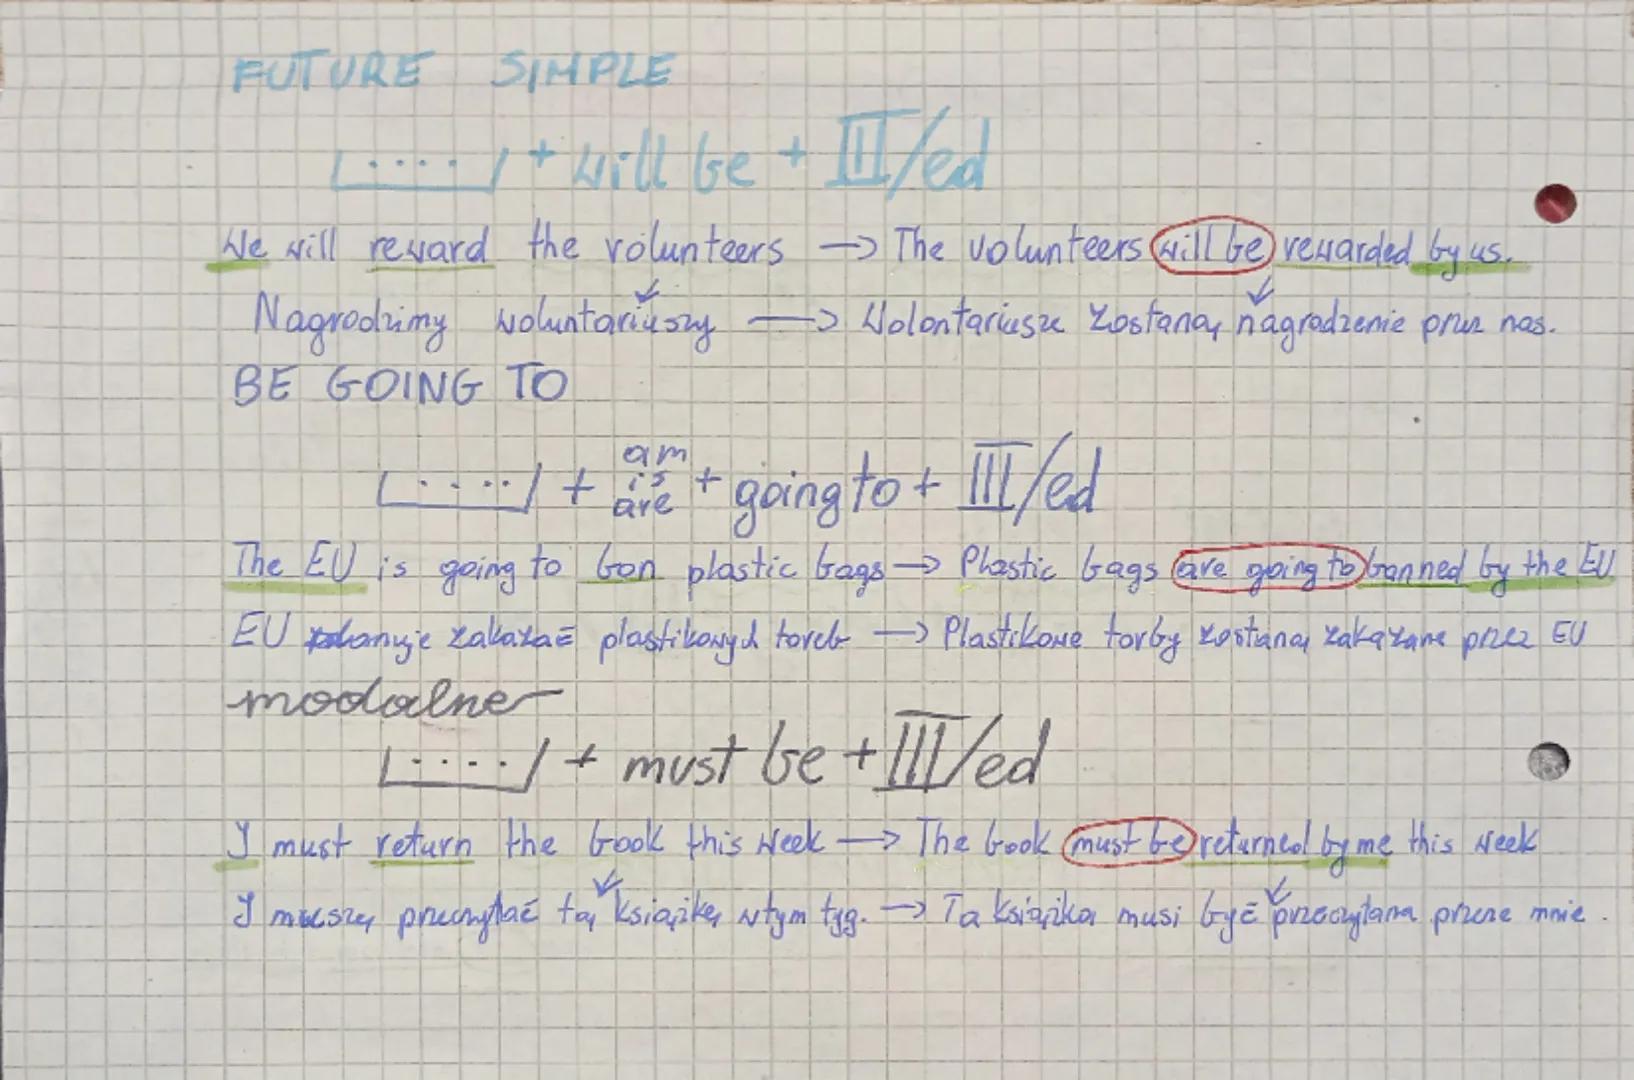 FUTURE SIMPLE
[....] + will be + III/ed
We will reward the volunteers → The volunteers will be rewarded by us.
Nagrodzimy woluntariuszy → Wolontariusze zostaną nagradzenie przez nas.
BE GOING TO
[....] + am is are + going to + III/ed
The EU is going to ban plastic bags → Plastic bags are going to banned by the EU
EU planuje zakazać plastikowych toreb → Plastikowe torby zostaną zakazane przez EU
modalne
[....] + must be + III/ed
I must return the book this week → The book must be returned by me this week
I muszę przeczytać tą książkę w tym tyg. → Ta książka musi być przeczytana przeze mnie.